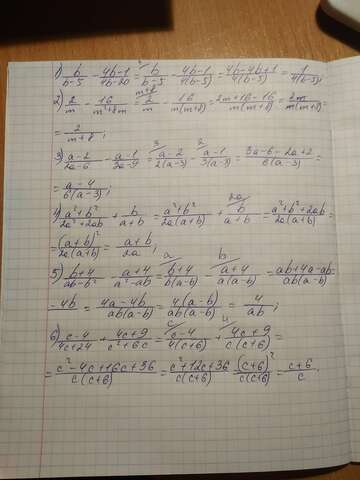 1) b/(b-5) - (4b-1)/(4b-20) = b/(b-5) - (4b-1)/(4(b-5)) = (4b-4b+1)/(4(b-5)) = 1/(4(b-5));
2) 2/m - 16/(m²+8m) = 2/m - 16/(m(m+8)) = (2m+16-16)/(m(m+8)) = 2m/(m(m+8)) =
= 2/(m+8);
3) (a-2)/(2a-6) - (a-1)/(3a-9) = (a-2)/(2(a-3)) - (a-1)/(3(a-3)) = (3a-6-2a+2)/(6(a-3)) =
= (a-4)/(6(a-3));
4) (a²+b²)/(2a²+2ab) + b/(a+b) = (a²+b²)/(2a(a+b)) + b/(a+b) = (a²+b²+2ab)/(2a(a+b)) =
= (a+b)²/(2a(a+b)) = (a+b)/2a;
5) (b+4)/(ab-b²) - (a+4)/(a²-ab) = (b+4)/(b(a-b)) - (a+4)/(a(a-b)) = (ab+4a-ab-
-4b)/ = (4a-4b)/(ab(a-b)) = 4(a-b)/(ab(a-b)) = 4/ab;
6) (c-4)/(4c+24) + (4c+9)/(c²+6c) = (c-4)/(4(c+6)) + (4c+9)/(c(c+6)) =
= (c²-4c+16c+36)/(c(c+6)) = (c²+12c+36)/(c(c+6)) = (c+6)²/(c(c+6)) = (c+6)/c.